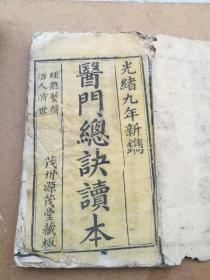 光緒九年新鐫
醫門總訣讀本
活人濟世
茂州源茂堂藏板